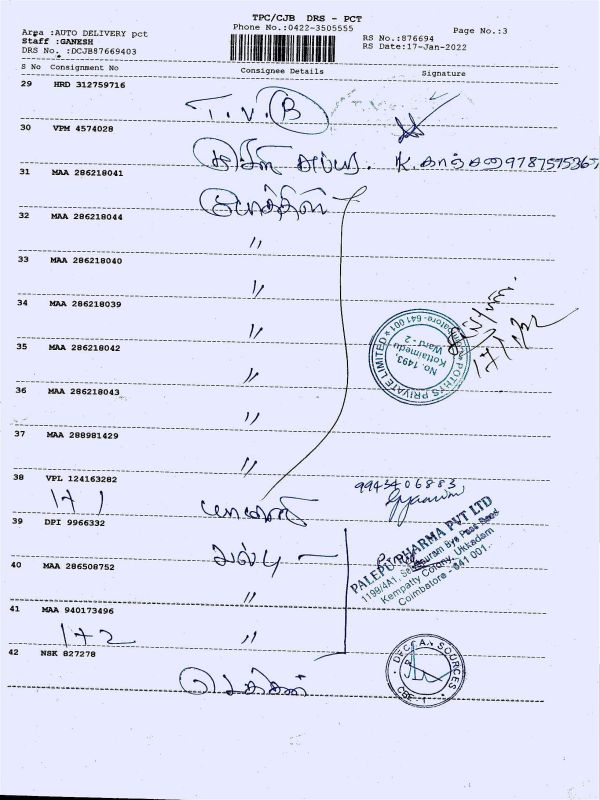 TPC/CJB DRS - PCT
Area :AUTO DELIVERY pct
Phone No.:0422-3505555
Page No.:3
Staff :GANESH
RS No.:876694
DRS No. :DCJB87669403
RS Date:17-Jan-2022
S No Consignment No Consignee Details Signature
29 HRD 312759716
T.V.B
30 VPM 4574028
9787575365
31 MAA 286218041
போத்தீஸ்
32 MAA 286218044
"
33 MAA 286218040
"
34 MAA 286218039
"
35 MAA 286218042
"
36 MAA 286218043
"
37 MAA 288981429
"
POTHYS PRIVATE LIMITED
No. 1493,
Kottaimedu
Ward - 2
641 001
17/1/22
38 VPL 124163282
9943406883
17 1
39 DPI 9966332
பல்பு
40 MAA 286508752
"
PALEPU PHARMA PVT LTD
1199/4A1, Bye Pass Road
Kempatty Colony, Ukkadam
Coimbatore - 641 001.
41 MAA 940173496
1+2 "
42 NSK 827278
DECCAN SOURCES
CBE - 1
டெக்கன்